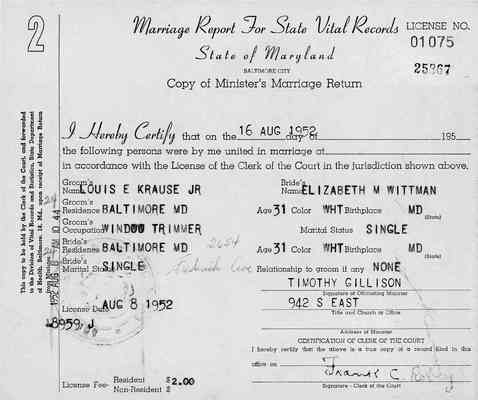 2
Marriage Report For State Vital Records
LICENSE NO.
01075
State of Maryland
BALTIMORE CITY
25867
Copy of Minister's Marriage Return
I Hereby Certify that on the 16 AUG 1952 day of 195
the following persons were by me united in marriage at
in accordance with the License of the Clerk of the Court in the jurisdiction shown above.
Groom's Name LOUIS E KRAUSE JR Bride's Name ELIZABETH M WITTMAN
Groom's Residence BALTIMORE MD Age 31 Color WHT Birthplace MD (State)
Groom's Occupation WINDOW TRIMMER Marital Status SINGLE
Bride's Residence BALTIMORE MD 2654 Age 31 Color WHT Birthplace MD (State)
Bride's Marital Status SINGLE Relationship to groom if any NONE
TIMOTHY GILLISON
Signature of Officiating Minister
License Date AUG 8 1952 942 S EAST
Title and Church or Office
18959, J
Address of Minister
CERTIFICATION OF CLERK OF THE COURT
I hereby certify that the above is a true copy of a record filed in this
office on
Frank C
Signature - Clerk of the Court
License Fee- Resident $2.00
Non-Resident $
This copy to be held by the Clerk of the Court, and forwarded
to the Division of Vital Records and Statistics, State Department
of Health, Baltimore 18, Md., upon receipt of Marriage Return
from Minister